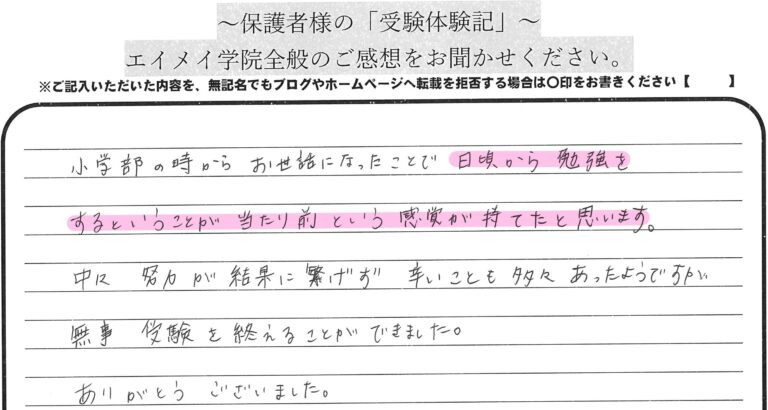 ～保護者様の「受験体験記」～
エイメイ学院全般のご感想をお聞かせください。
※ご記入いただいた内容を、無記名でもブログやホームページへ転載を拒否する場合は〇印をお書きください【　　】
小学部の時から お世話になったことで 日頃から 勉強を
するということが 当たり前 という 感覚が 持てたと思います。
中々 努力が 結果に 繋げず 辛いことも 多々 あったようですが
無事 受験を終えることができました。
ありがとう ございました。